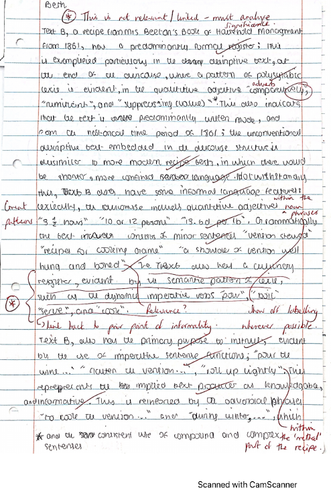 Beth
* This is not relevant / linked - must analyse
significance
Text B, a recipe from Mrs Beeton's Book of Household Management
from 1861, has a predominantly formal register; this
is exemplified particularly in the descriptive text, at
the end of the discourse, where a pattern of polysyllabic
lexis is evident, in the qualitative adjective "comparatively",
"reminiscent", and "suppressing". This also indicates
that the text is predominantly written mode, and
from the historical time period of 1861; the unconventional
descriptive text embedded in the discourse structure is
dissimilar to more modern recipe texts, in which there would
be shorter, more language. Notwithstanding
this, Text B does have some informal language features:
within the
noun phrases
Great
patterns
"3 ½ hours" "10 or 12 persons" Grammatically
the text includes of minor sentences "venison
"recipes for cooking "a shoulder of venison well
hung and boned". The Text also has a culinary
register, evident by its semantic pattern of lexis,
such as the dynamic imperative verbs "pour", "boil",
"serve", and "cook". Relevance? show off labelling
*
link back to prior point of informality. wherever possible.
Text B, also has the primary purpose to instruct, evident
by the use of imperative sentence functions; "pour the
wine..." "flatten the venison...", "roll up tightly". This
represents the implied text producer as knowledgeable,
and informative. This is reinforced by the adverbial phrases
"to cook the venison..." and "during winter,...", which
within
* and the consistent use of compound and complex
sentences
the 'method'
part of the recipe.
Scanned with CamScanner